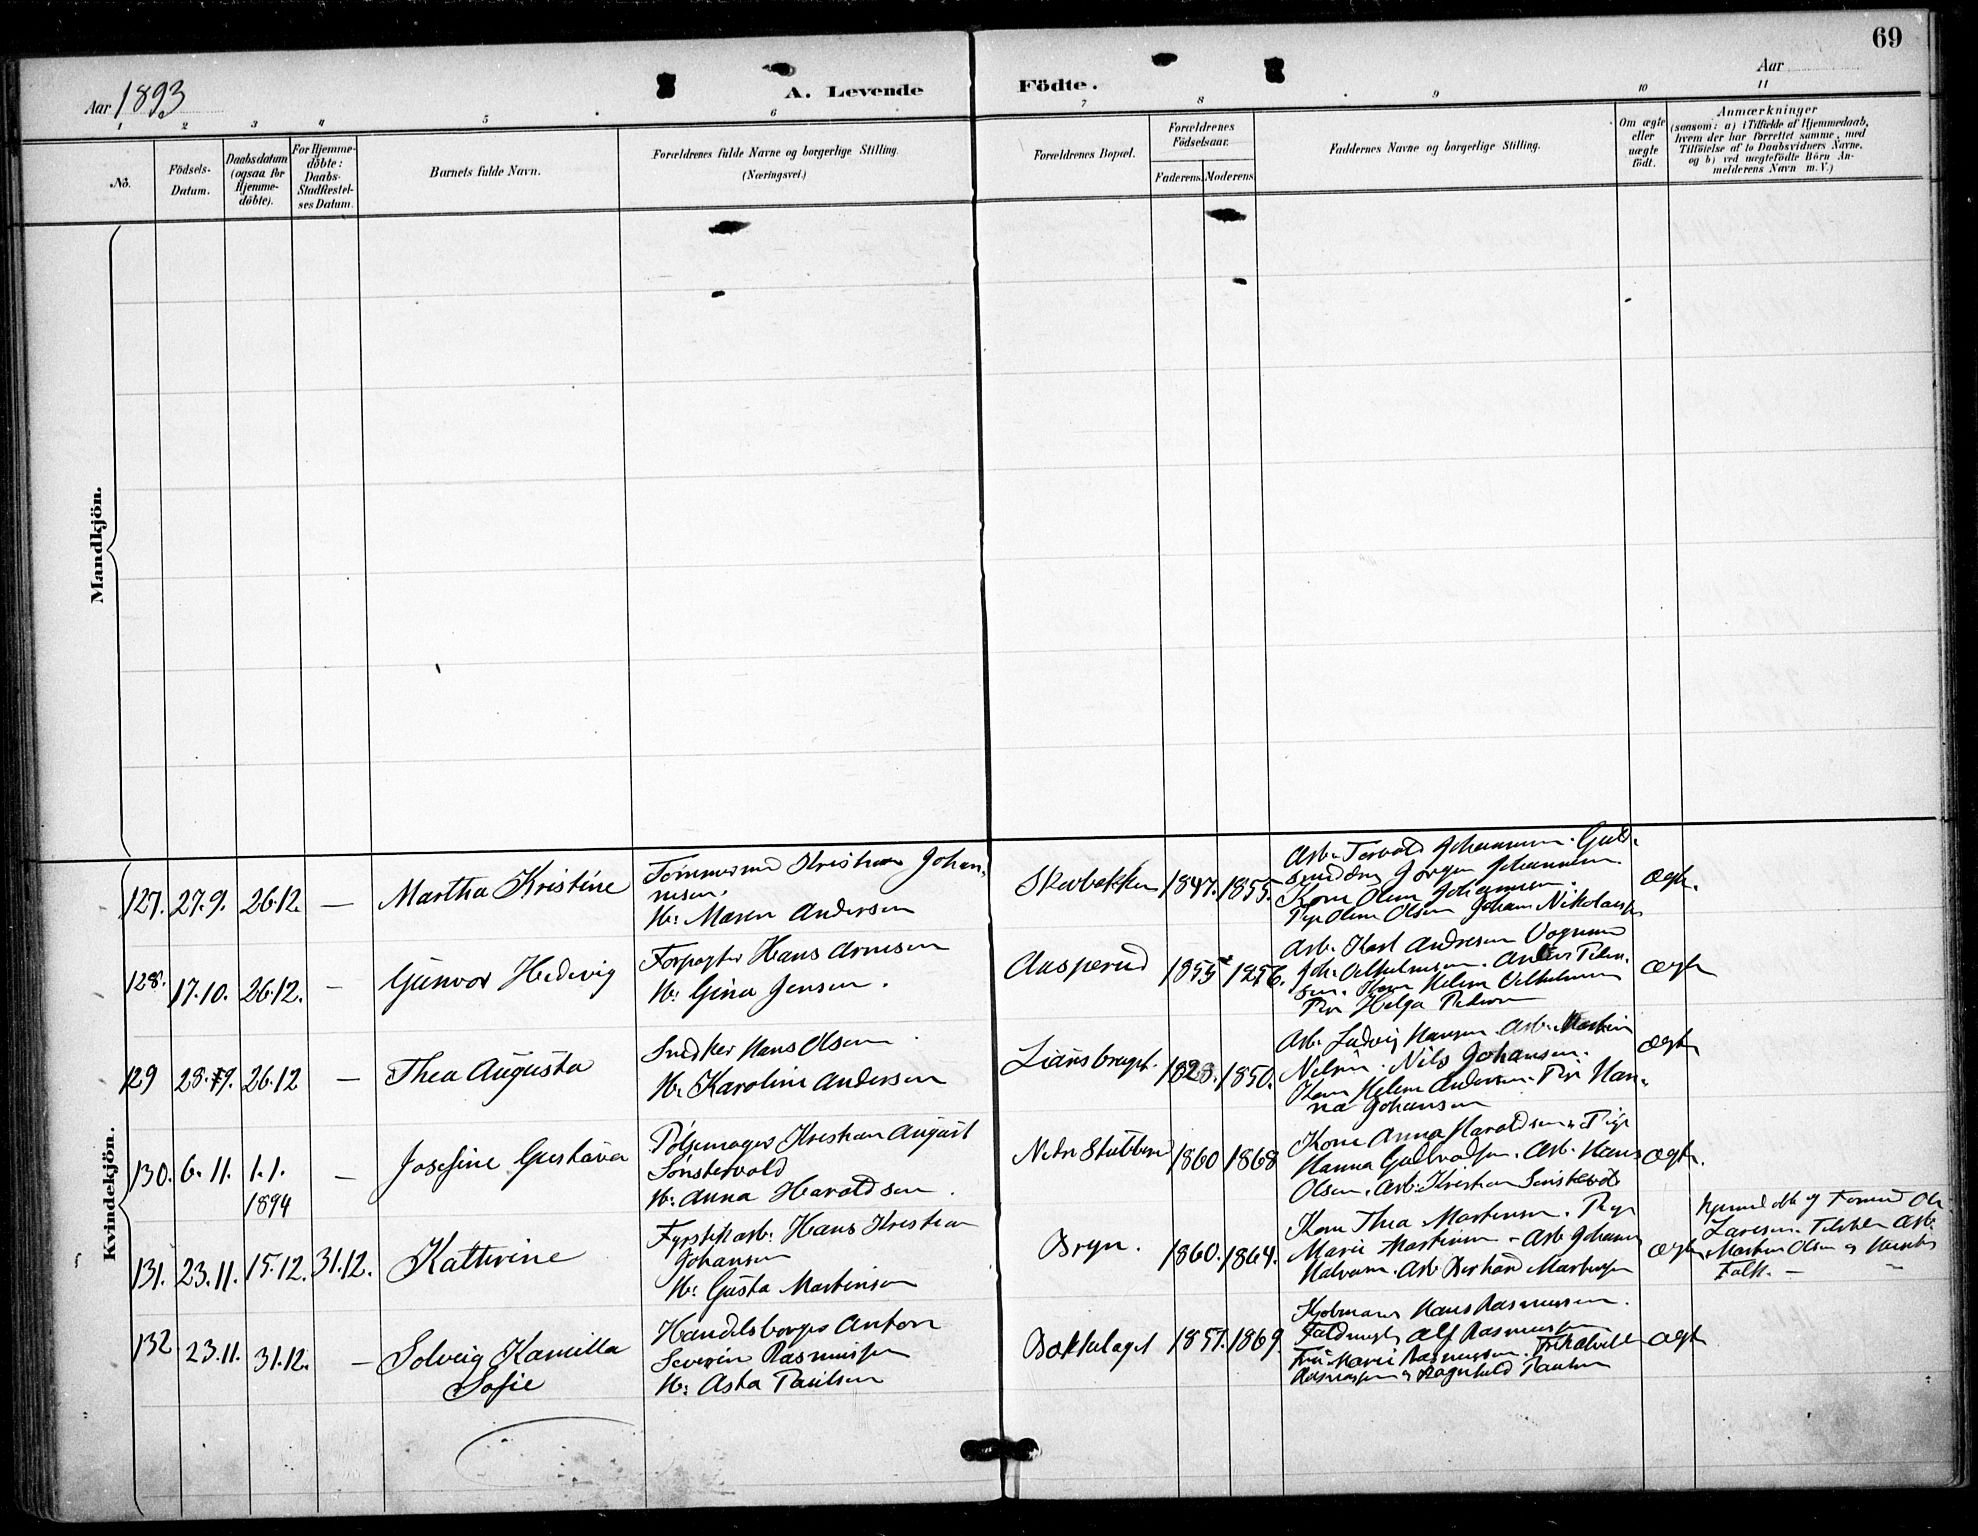 69
Aar 1893
A. Levende Födte.
Aar
1 2 3 4 5 6 7 8 9 10 11
No.
Födsels-
Datum.
Daabsdatum
(ogsaa for
Hjemme-
döbte).
For Hjemme-
döbte:
Daabs-
Stadfæstel-
ses Datum.
Barnets fulde Navn.
Forældrenes fulde Navne og borgerlige Stilling.
(Næringsvei.)
Forældrenes Bopæl.
Forældrenes
Födselsaar.
Faderens. Moderens.
Faddernes Navne og borgerlige Stilling.
Om ægte
eller
uægte
födt.
Anmærkninger
(saasom: a) i Tilfælde af Hjemmedaab,
hvem der har forrettet samme, med
Tilföielse af to Daabsvidners Navne,
og b) ved uægtefödte Börn An-
melderens Navn m.V.)
Mandkjön.
Kvindekjön.
127. 27.9. 26.12. — Martha Kristine
Tømmermd Kristian Johan-
nesen.
H: Maren Andersen
Skovbakken 1847. 1855.
Arb. Torvald Johannesen. Guld-
Jørgen Johannesen
Kone Oline Johannesen.
Olsen Johans Nikolaisen
ægte.
128. 17.10. 26.12. — Gunvor Hedevig
Forpagter Hans Arnesen
H: Gina Jensen.
Aasperud 1855 1856.
Arb. Karl Andresen Vognmd
Joh. Vilhelmsen. Anders Peder-
sen. Kone Helene Vilhelmsen
Pige Helga Pedersen
ægte
129 28.9. 26.12 — Thea Augusta
Snedker Hans Olsen
H: Karoline Andersen
Liansbraget. 1828. 1850.
Arb. Ludvig Hansen. Arb. Martin
Nilsen. Nils Johansen.
Kone Helene Andersen. Pige Han-
na Johansen
ægte
130. 6.11. 1.1. 1894 — Josefine Gustava
Pølsemager Kristian August
Sønstevold
H: Anna Haraldsen.
Nedre Stubberud 1860 1868
Kone Anna Haraldsen. Pige
Hanna Gulbrandsen. Arb. Hans
Olsen. Arb. Kristian Sønstevold
ægte.
131. 23.11. 15.12. 31.12. Kathrine
Fyrstikarb. Hans Kristian
Johansen
H: Gusta Martinsen
Bryn. 1860. 1864.
Kone Thea Martinsen. Pige
Marie Martinsen - Arb. Johannes
Halvorsen. Arb. Bernhard Martinsen
ægte
Hjemmedøbt af Formd Ole
Larsen. Tilstede Arb.
Martin Olsen og
Falk. — —
132 23.11. 31.12. — Solveig Kamilla
Sofie
Handelsborger Anton
Severin Rasmussen
H: Asta Paulsen
Bækkelaget 1857. 1869.
Kjøbmand Hans Rasmussen.
Fuldmægtig Alf Rasmussen
Fru Marie Rasmussen.
Rasmussen og Ragnhild Paulsen
ægte